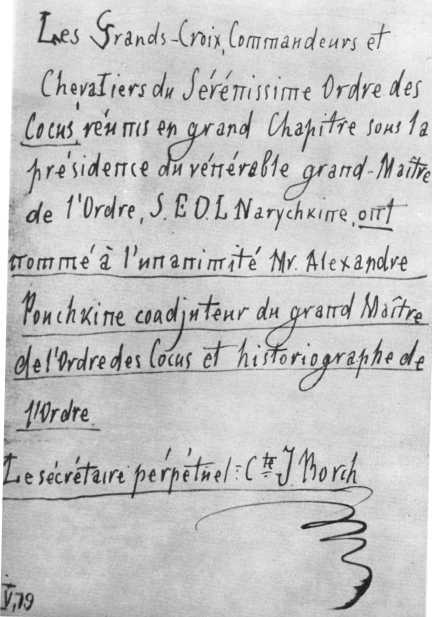 Les Grands-Croix, Commandeurs et
Chevaliers du Sérénissime Ordre des
Cocus, réunis en grand Chapitre sous la
présidence du vénérable grand-Maître
de l'Ordre, S. E. D. L. Narychkine, ont
nommé à l'unanimité Mr. Alexandre
Pouchkine coadjuteur du grand Maître
de l'Ordre des Cocus et historiographe de
l'Ordre.
Le sécrétaire perpétuel: Cte J Borch
V,79